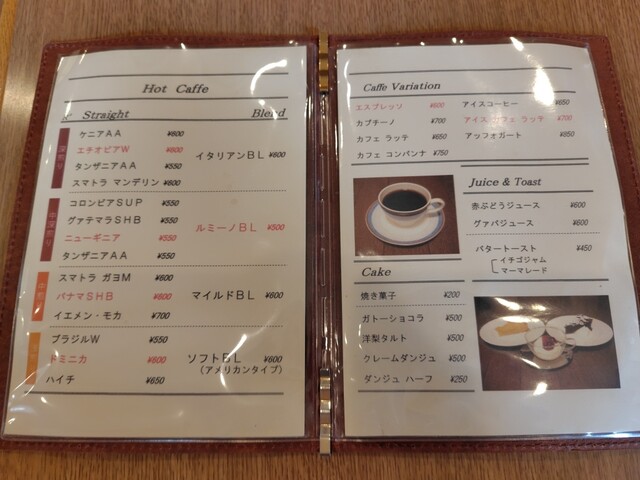 Hot Caffe
Straight Blend
深煎り
ケニアAA ¥600
エチオピアW ¥600
タンザニアAA ¥550
スマトラ マンデリン ¥600
イタリアンBL ¥600
中深煎り
コロンビアSUP ¥550
グァテマラSHB ¥550
ニューギニア ¥550
タンザニアAA ¥550
ルミーノBL ¥500
スマトラ ガヨM ¥600
パナマSHB ¥600
イエメン・モカ ¥700
マイルドBL ¥600
ブラジルW ¥550
ドミニカ ¥600
ハイチ ¥650
ソフトBL ¥600
(アメリカンタイプ)
Caffe Variation
エスプレッソ ¥600
カプチーノ ¥700
カフェ ラッテ ¥650
カフェ コンパンナ ¥750
アイスコーヒー ¥650
アイスカフェ ラッテ ¥700
アッフォガート ¥850
Juice & Toast
赤ぶどうジュース ¥600
グァバジュース ¥600
バタートースト ¥450
イチゴジャム
マーマレード
Cake
焼き菓子 ¥200
ガトーショコラ ¥500
洋梨タルト ¥500
クレームダンジュ ¥500
ダンジュ ハーフ ¥250